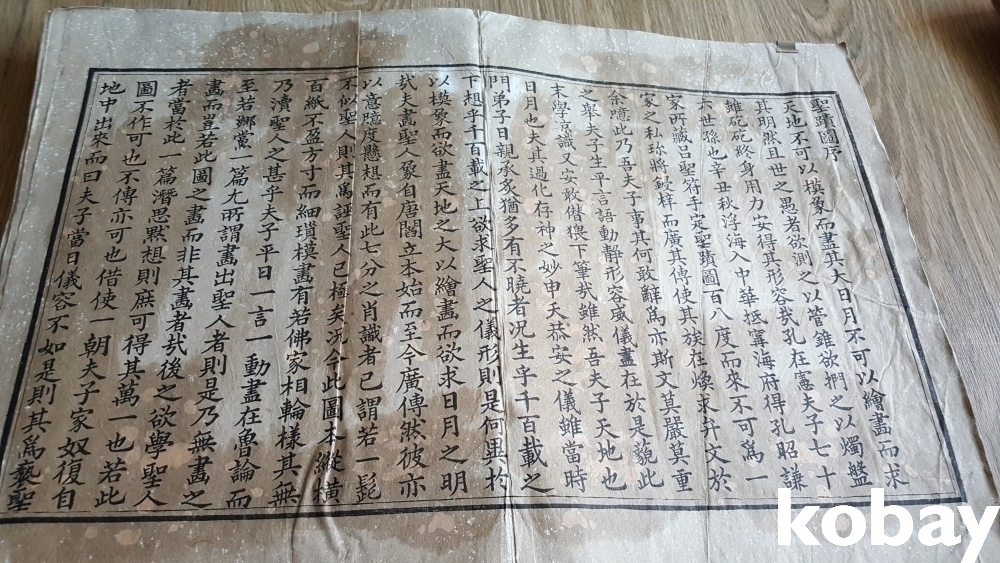 聖蹟圖序
天地不可以模象而盡其大日月不可以繪畫而求
其明然且世之愚者欲測之以管錐欲捫之以燭盤
雖矻矻終身用力安得其形容哉孔在憲夫子七十
六世孫也辛丑秋浮海入中華抵寧海府得孔昭謙
家所藏呂聖符手定聖蹟圖百八度而來不可爲一
家之私珍將鋟梓而廣其傳使其族在煥求弁文於
余噫此乃吾夫子事其何敢辭焉亦斯文莫嚴莫重
之舉夫子生平言語動靜形容威儀盡在於是藐此
末學謭識又安敢僣猥下筆哉雖然吾夫子天地也
日月也夫其過化存神之妙申夭恭安之儀雖當時
門弟子日親承炙猶多有不曉者况生乎千百載之
下想乎千百載之上欲求聖人之儀形則是何異於
以模象而欲盡天地之大以繪畫而欲求日月之明
哉夫畫聖人象自唐閻立本始而至今廣傳然彼亦
以意臆度懸想而有此七分之肖識者已謂若一髭
不似聖人則其爲誣聖人已極矣况今此圖本縱橫
百紙不盈方寸而細瑣模畫有若佛家相輪樣其無
乃瀆聖人之甚乎夫子平日一言一動盡在魯論而
至若鄕黨一篇尤所謂畫出聖人者則是乃無畫之
畫而豈若此圖之畫而非其畫者哉後之欲學聖人
者當於此一篇潛思默想則庶可得其萬一也若此
圖不作可也不傳亦可也借使一朝夫子家奴復自
地中出來而曰夫子當日儀容不如是則其爲褻聖
kobay